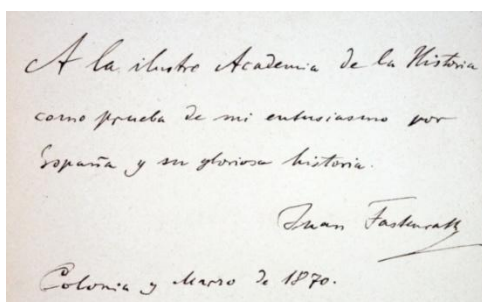 A la ilustre Academia de la Historia
como prueba de mi entusiasmo por
España y su gloriosa historia.
Juan Fastenrath
Colonia y Marzo de 1870.